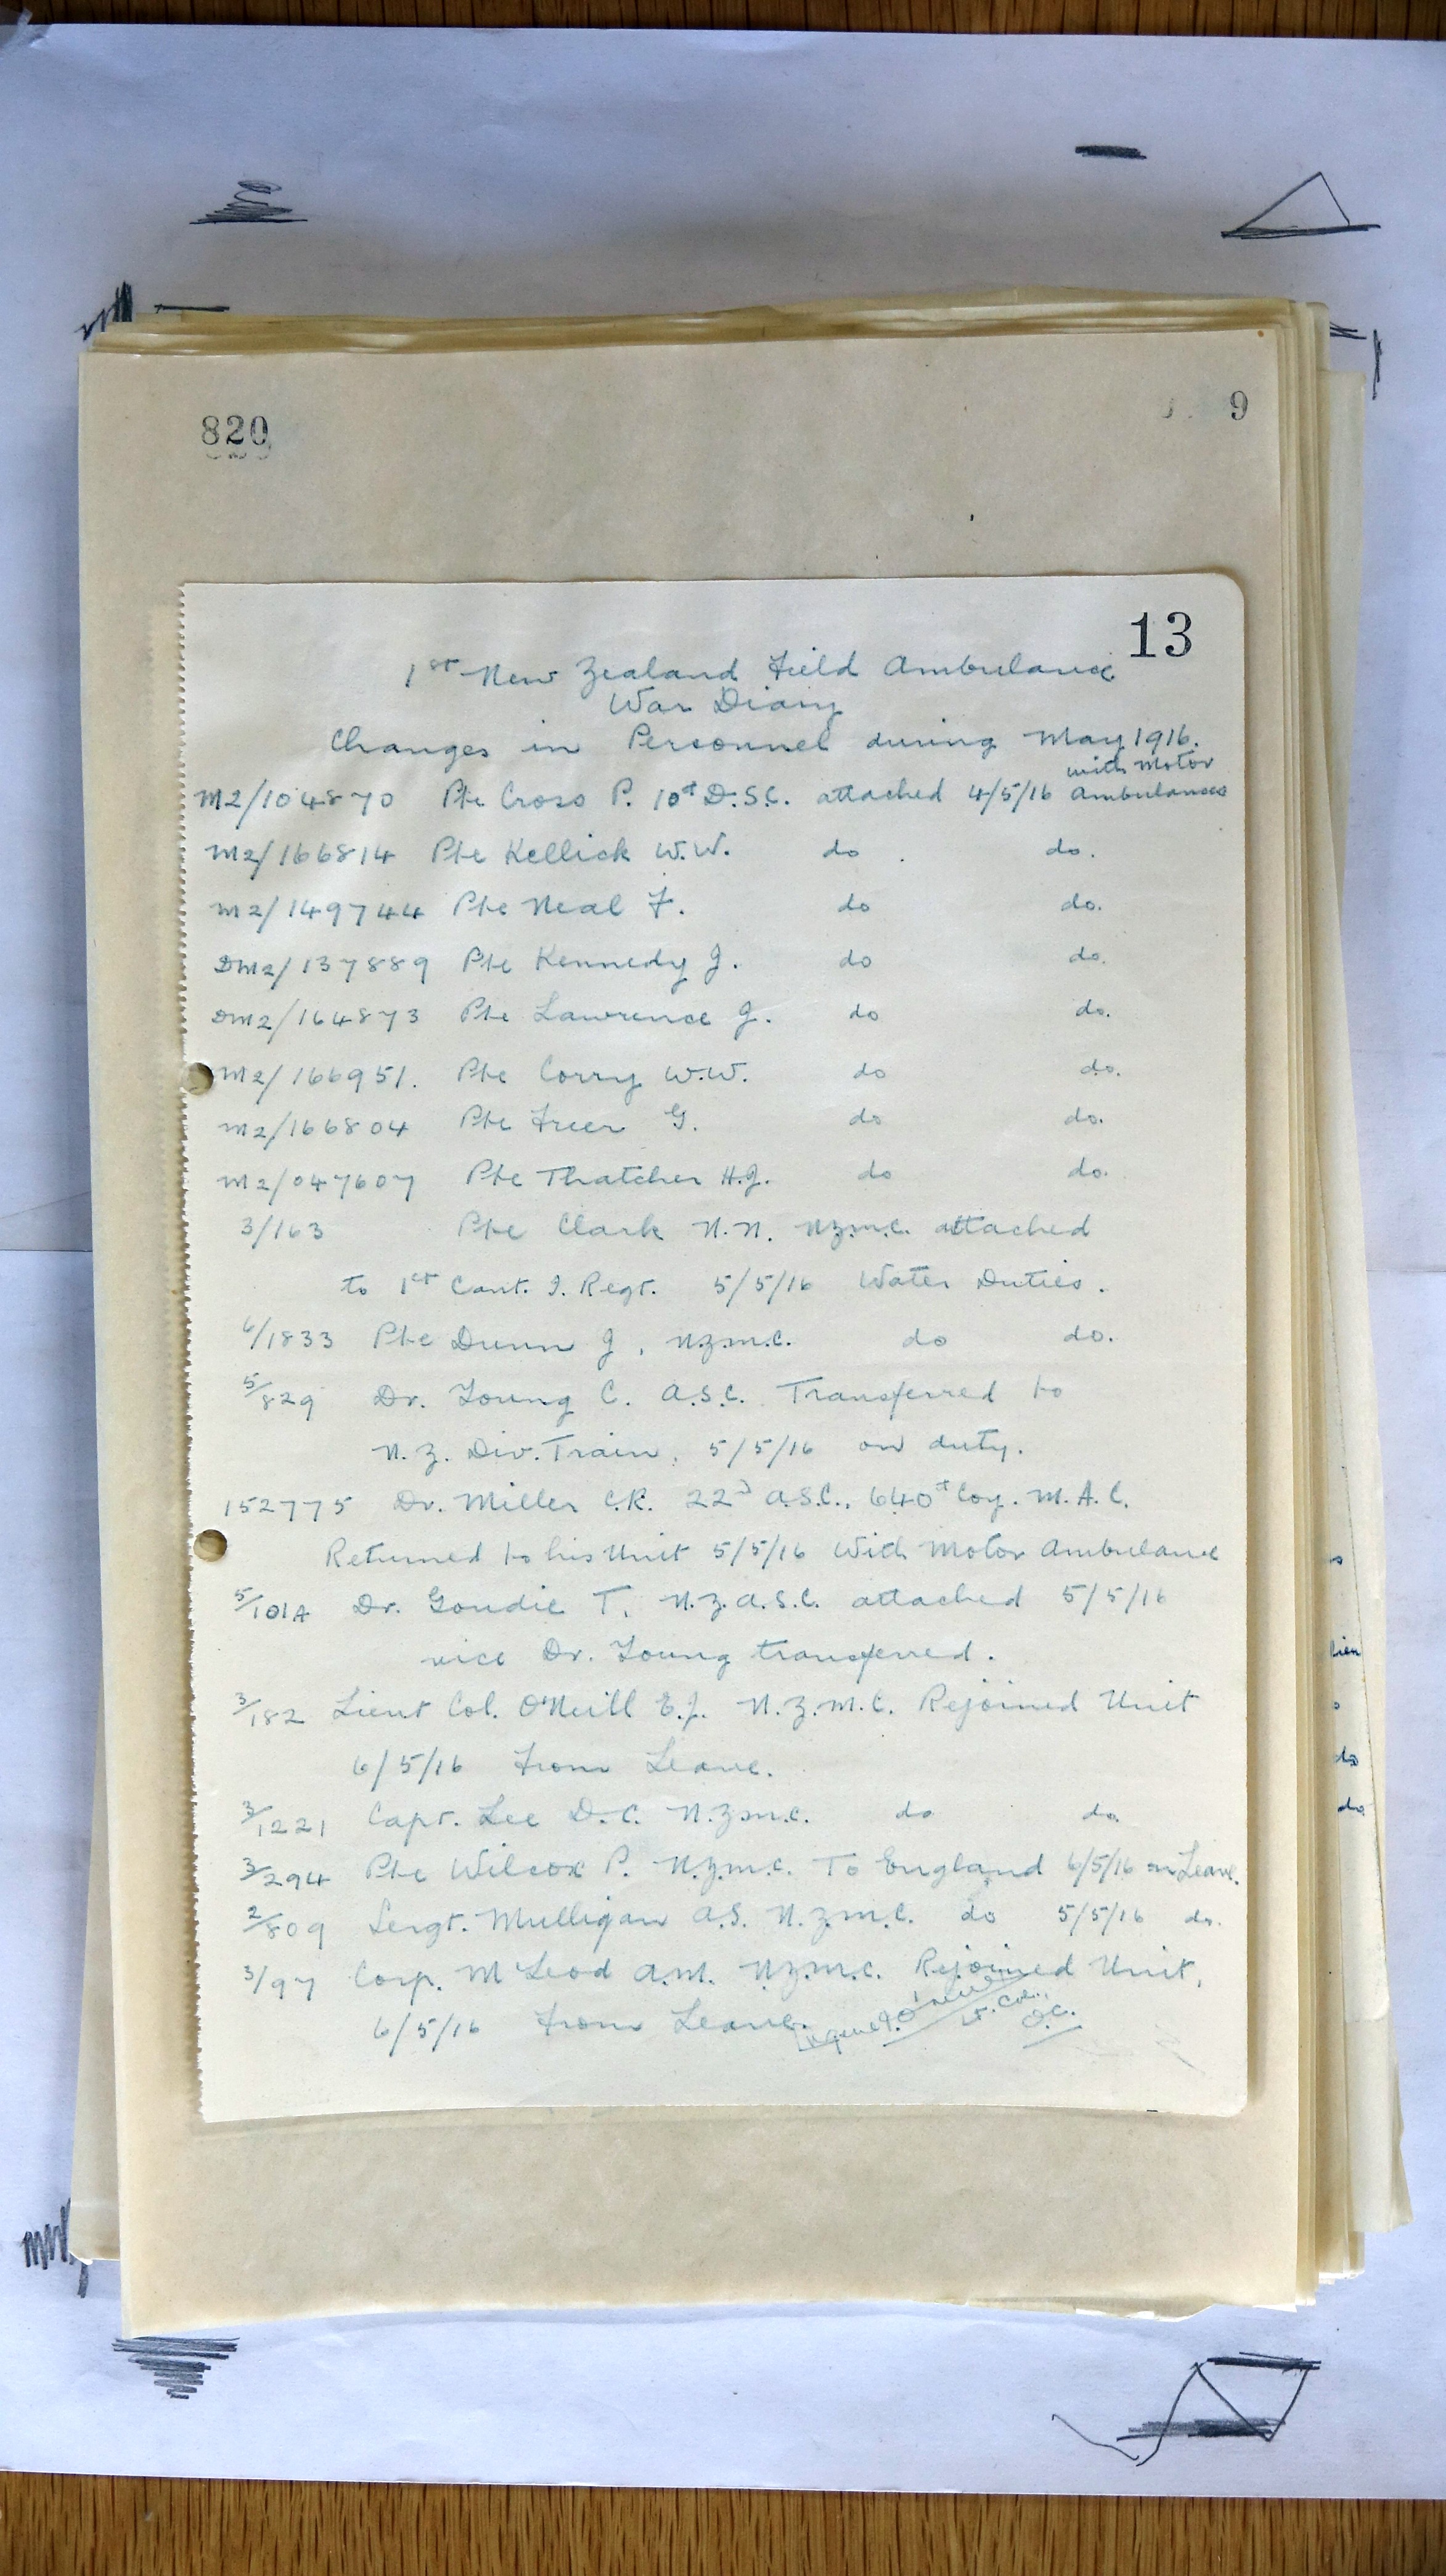 820
9
13
1st New Zealand Field Ambulance
War Diary
Changes in Personnel during May 1916.
with Motor
M2/104870 Pte Cross P. 10th D.S.C. attached 4/5/16 Ambulances
M2/166814 Pte Kellick W.W. do . do.
M2/149744 Pte Neal F. do do.
DM2/137889 Pte Kennedy J. do do.
DM2/164873 Pte Lawrence J. do do.
M2/166951. Pte Corry W.W. do do.
M2/166804 Pte Freer G. do do.
M2/047607 Pte Thatcher H.J. do do.
3/163 Pte Clark N.N. N.Z.M.C. attached
to 1st Cant. I. Regt. 5/5/16 Water Duties.
6/1833 Pte Dunn J, N.Z.M.C. do do.
5/829 Dr. Young C. A.S.C. Transferred to
N.Z. Div. Train, 5/5/16 on duty.
152775 Dr. Miller C.R. 22D A.S.C., 640th Coy. M.A.C.
Returned to his Unit 5/5/16 With Motor Ambulance
5/101A Dr. Goudie T, N.Z.A.S.C. attached 5/5/16
vice Dr. Young transferred.
3/182 Lieut Col. O'Neill E.J. N.Z.M.C. Rejoined Unit
6/5/16 From Leave.
3/1221 Capt. Lee D.C. N.Z.M.C. do do
3/294 Pte Wilcox P. N.Z.M.C. To England 6/5/16 on Leave.
2/809 Sergt. Mulligan A.S. N.Z.M.C. do 5/5/16 do.
3/97 Corp. McLeod A.M. N.Z.M.C. Rejoined Unit,
6/5/16 From Leave.
O'Neill Lt. Col.,
O.C.
do
do